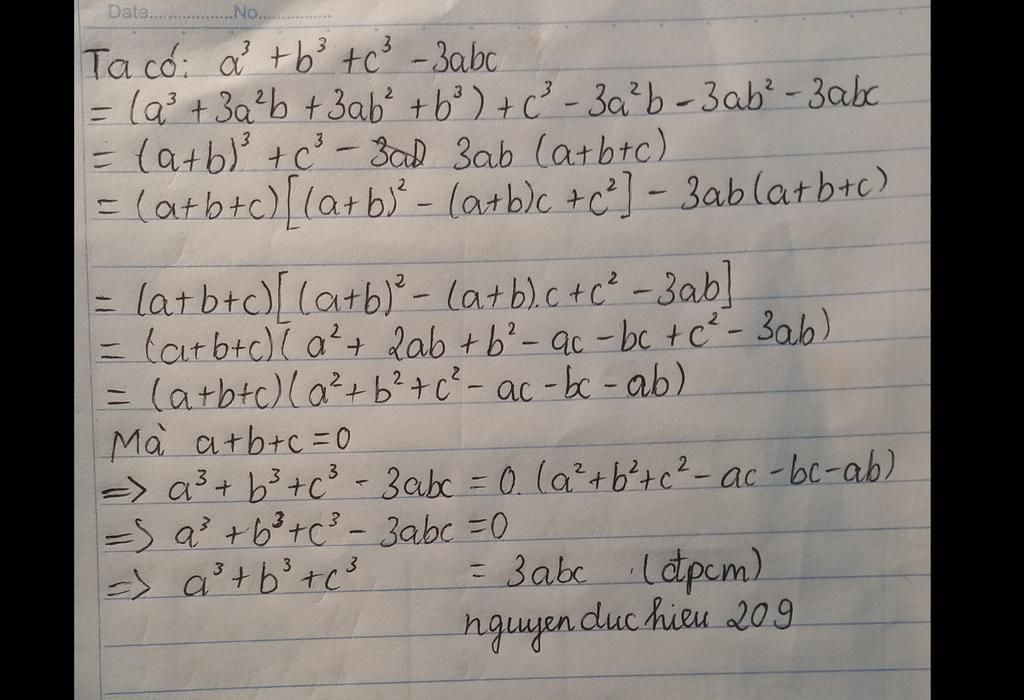 Date.................No...............
Ta có: a³ + b³ + c³ - 3abc
= (a³ + 3a²b + 3ab² + b³) + c³ - 3a²b - 3ab² - 3abc
= (a+b)³ + c³ - 3ab (a+b+c)
= (a+b+c)[(a+b)² - (a+b)c + c²] - 3ab(a+b+c)
= (a+b+c)[(a+b)² - (a+b).c + c² - 3ab]
= (a+b+c)(a² + 2ab + b² - ac - bc + c² - 3ab)
= (a+b+c)(a² + b² + c² - ac - bc - ab)
Mà a+b+c = 0
=> a³ + b³ + c³ - 3abc = 0.(a² + b² + c² - ac - bc - ab)
=> a³ + b³ + c³ - 3abc = 0
=> a³ + b³ + c³ = 3abc (đpcm)
nguyen duc hieu 209